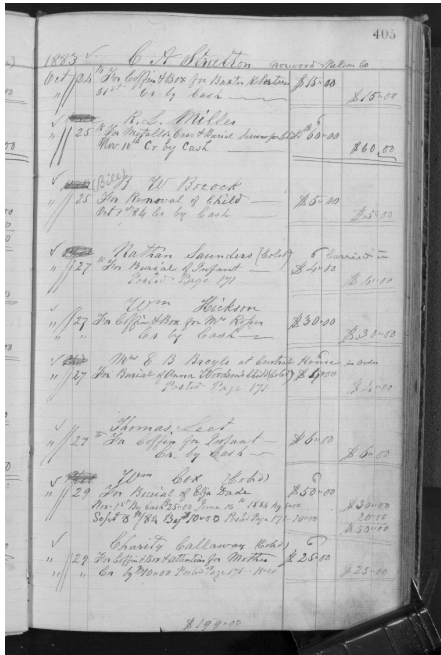 405
1883 C A Stratton Norwood Nelson Co
Oct 24 To Coffin & Box for Baxter $15-00
31st Cr by Cash $15-00
R. L. Miller
" 25 To Metallic Case & Burial $60-00
Nov 10th Cr by Cash $60.00
(Bill) W Bocock
" 25 For Removal of Child $5-00
Oct 1st 84 Cr by Cash $5-00
Nathan Saunders (Cold) Carried in
" 27 To For Burial of Infant $4-00
Posted Page 171 $4-00
Wm Hickson
" 27 To Coffin & Box for Mrs $30-00
" " Cr by Cash $30-00
Mrs E B Broyle at Central House
" 27 For Burial of Anna Child (Cold)
Posted Page 171 $4-00
Thomas
" 27 To Coffin for Infant $6-00
" " Cr. by Cash $6-00
Wm Cox (Cold)
" 29 For Burial of Eliza Dade $50-00
Nov 1st By Cash 25-00 June 16th 1884 By $30-00
Sept 8th/84 By 10-00 Posted Page 171-10-00 20-00
$50-00
Charity Callaway (Cold)
" 29 For Coffin & Box & attention for Mother $25-00
" " Cr by 10-00 Posted Page 171-15-00 $25-00
$199-00